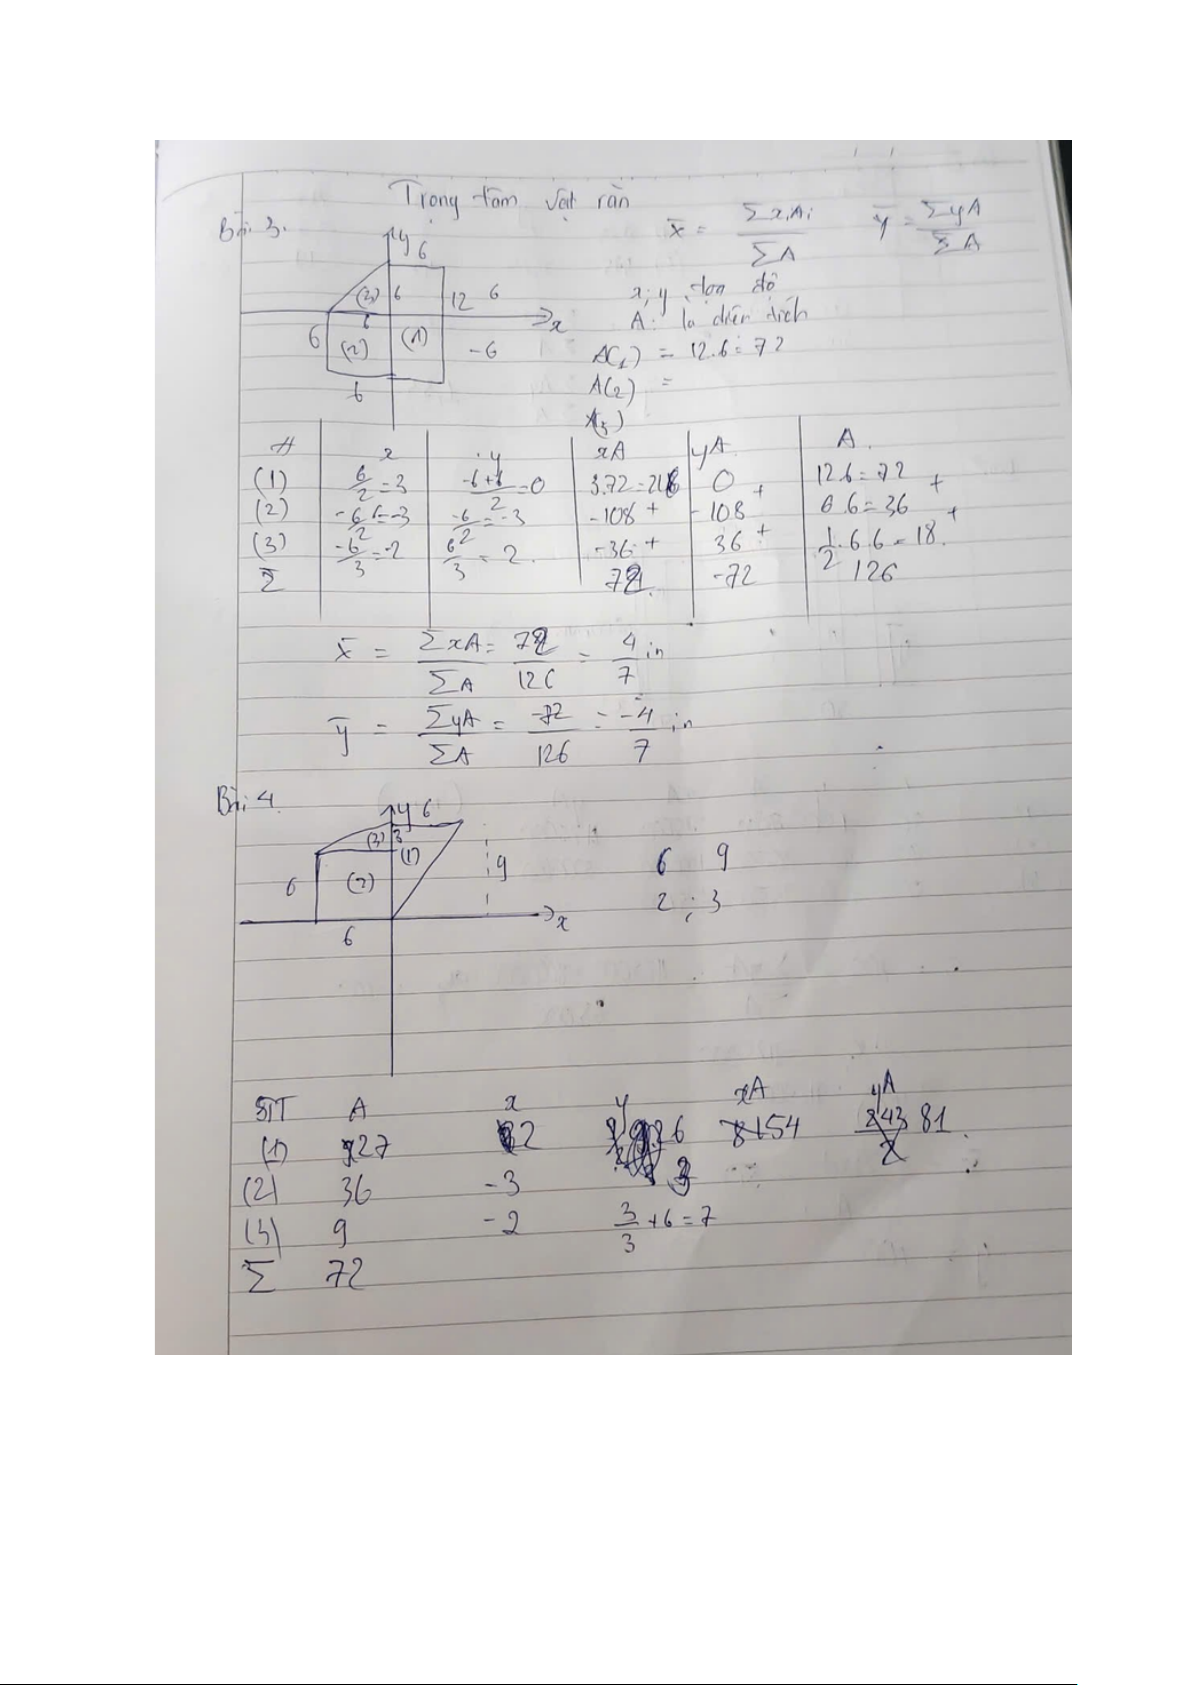 Trọng tâm vật rắn
Bài 3.
x̄ = ΣxᵢAᵢ / ΣA ȳ = ΣyA / ΣA
y 6
(3) 6 12 6
x; y tọa độ
6 x
A: là diện tích
6 (2) (1) -6
A(1) = 12.6 = 72
6
A(2) =
A(3)
# x y xA yA A.
(1) 6/2 = 3 -6+6/2 = 0 3.72 = 216 0 + 12.6 = 72 +
(2) -6/2 = -3 -6/2 = -3 -108 + -108 6.6 = 36 +
(3) -6/3 = -2 6/3 = 2. -36 + 36 + 1/2.6.6 = 18.
Σ 72 -72 126
x̄ = ΣxA/ΣA = 72/126 = 4/7 in
ȳ = ΣyA/ΣA = -72/126 = -4/7 in
Bài 4
y 6
(3) 3
(1)
6 (2) 9 6 9
2 ; 3
x
6
STT A x y xA yA
(1) 27 2 6 54 243/2 81
(2) 36 -3 3
(3) 9 -2 3/3 + 6 = 7
Σ 72